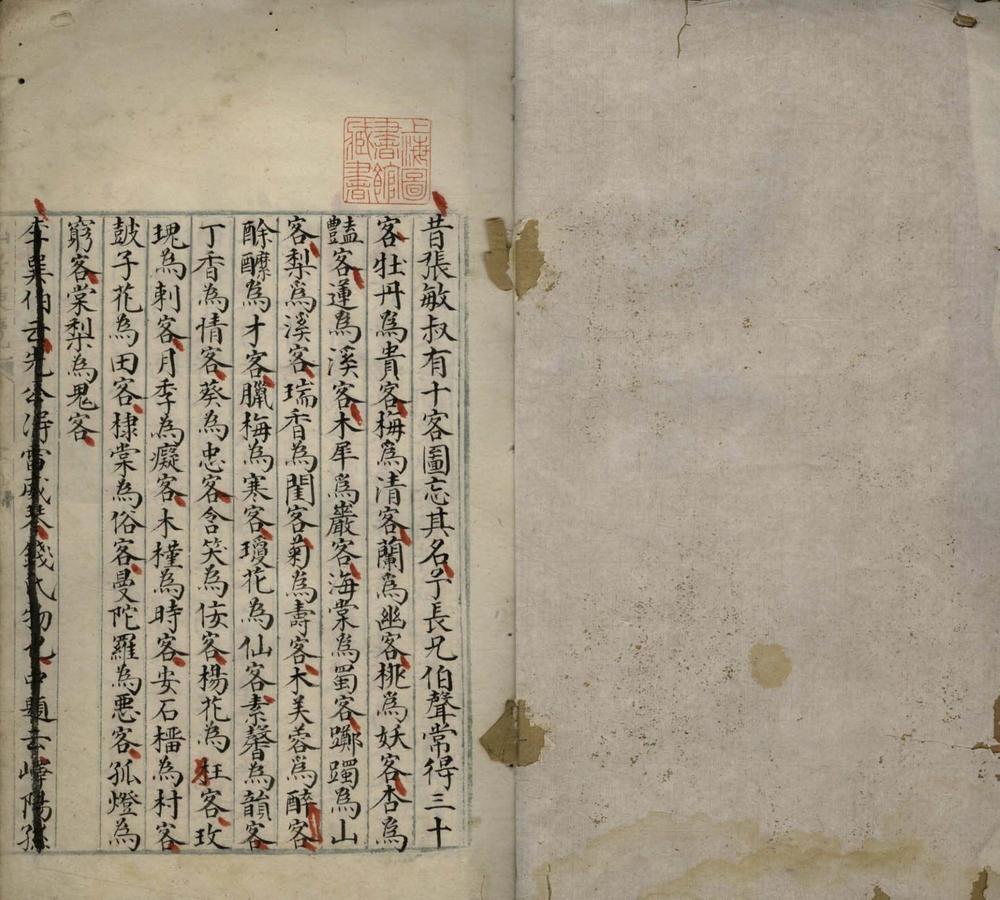 上海圖
書館
藏書
昔張敏叔有十客圖忘其名予長兄伯聲常得三十
客牡丹為貴客梅為清客蘭為幽客桃為妖客杏為
豔客蓮為溪客木犀爲巖客海棠為蜀客躑躅為山
客梨爲溪客瑞香為閨客菊為壽客木芙蓉為醉客
酴醾為才客臘梅為寒客瓊花為仙客素馨為韻客
丁香為情客葵為忠客含笑為佞客楊花為狂客玫
瑰為刺客月季為癡客木槿為時客安石榴為村客
鼓子花為田客棣棠為俗客曼陀羅為悪客孤燈為
窮客棠梨為鬼客
李巽伯云先公得雷威琴錢氏物也中題云嶧陽孫